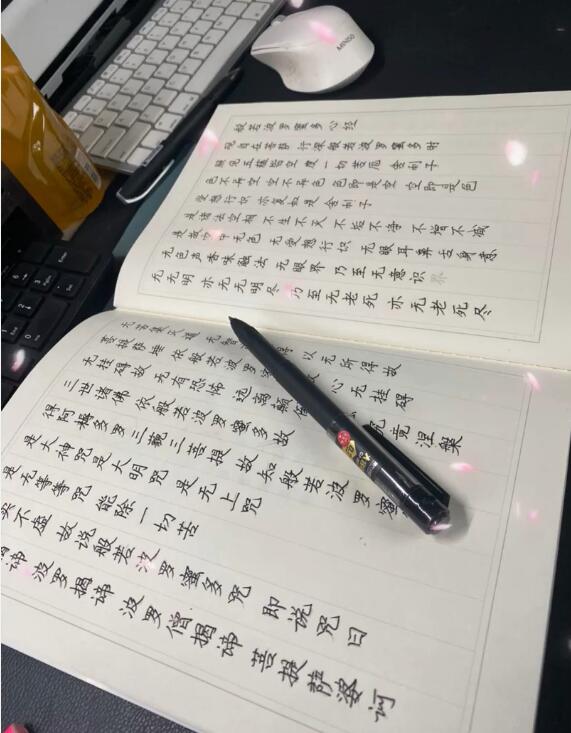 MINISO
般若波罗蜜多心经
观自在菩萨 行深般若波罗蜜多时
照见五蕴皆空 度一切苦厄 舍利子
色不异空 空不异色 色即是空 空即是色
受想行识 亦复如是 舍利子
是诸法空相 不生不灭 不垢不净 不增不减
是故空中无色 无受想行识 无眼耳鼻舌身意
无色声香味触法 无眼界 乃至无意识界
无无明 亦无无明尽 乃至无老死 亦无老死尽
无苦集灭道 无智 得 以无所得故
菩提萨埵 依般若波罗 故 心无挂碍
无挂碍故 无有恐怖 远离颠倒 究竟涅槃
三世诸佛 依般若波罗蜜多故
得阿耨多罗三藐三菩提 故知般若波罗蜜
是大神咒 是大明咒 是无上咒
是无等等咒 能除一切苦
实不虚 故说般若波罗蜜多咒 即说咒曰
揭谛 波罗揭谛 波罗僧揭谛 菩提萨婆诃